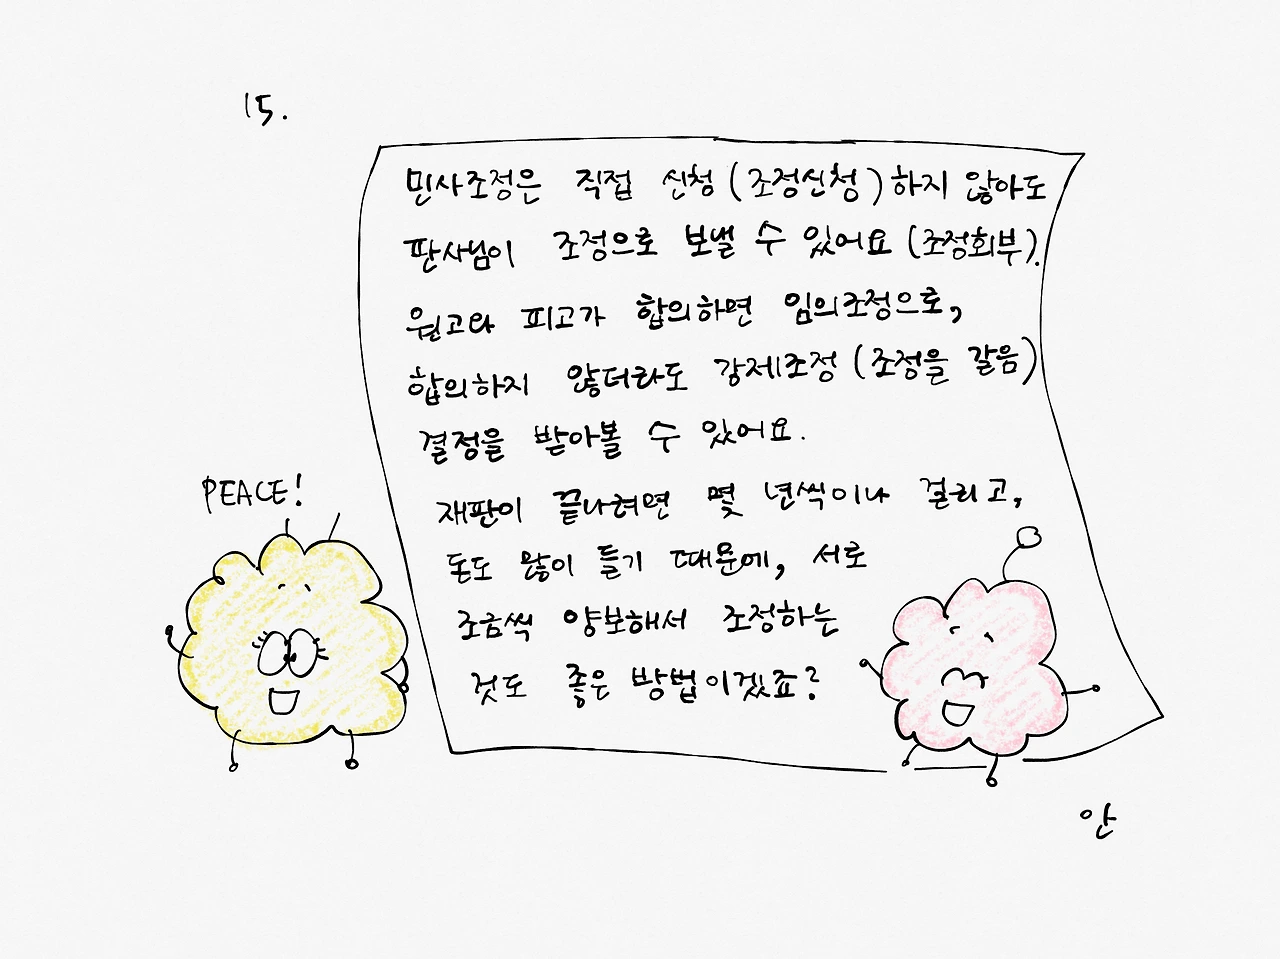 15.
민사조정은 직접 신청(조정신청)하지 않아도
판사님이 조정으로 보낼 수 있어요(조정회부).
원고와 피고가 합의하면 임의조정으로,
합의하지 않더라도 강제조정(조정을 갈음)
결정을 받아볼 수 있어요.
재판이 끝나려면 몇 년씩이나 걸리고,
돈도 많이 들기 때문에, 서로
조금씩 양보해서 조정하는
것도 좋은 방법이겠죠?
PEACE!
안